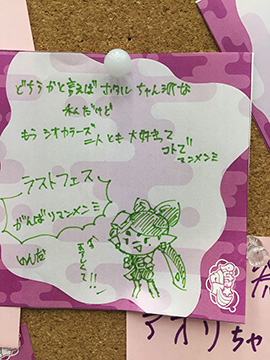 どちらかと言えば ホタルちゃん派な
私だけど
もう シオカラーズ
二人とも 大好きって
コトで
マンメンミ
ラストフェス
がんばりマンメンミ
アオリちゃ